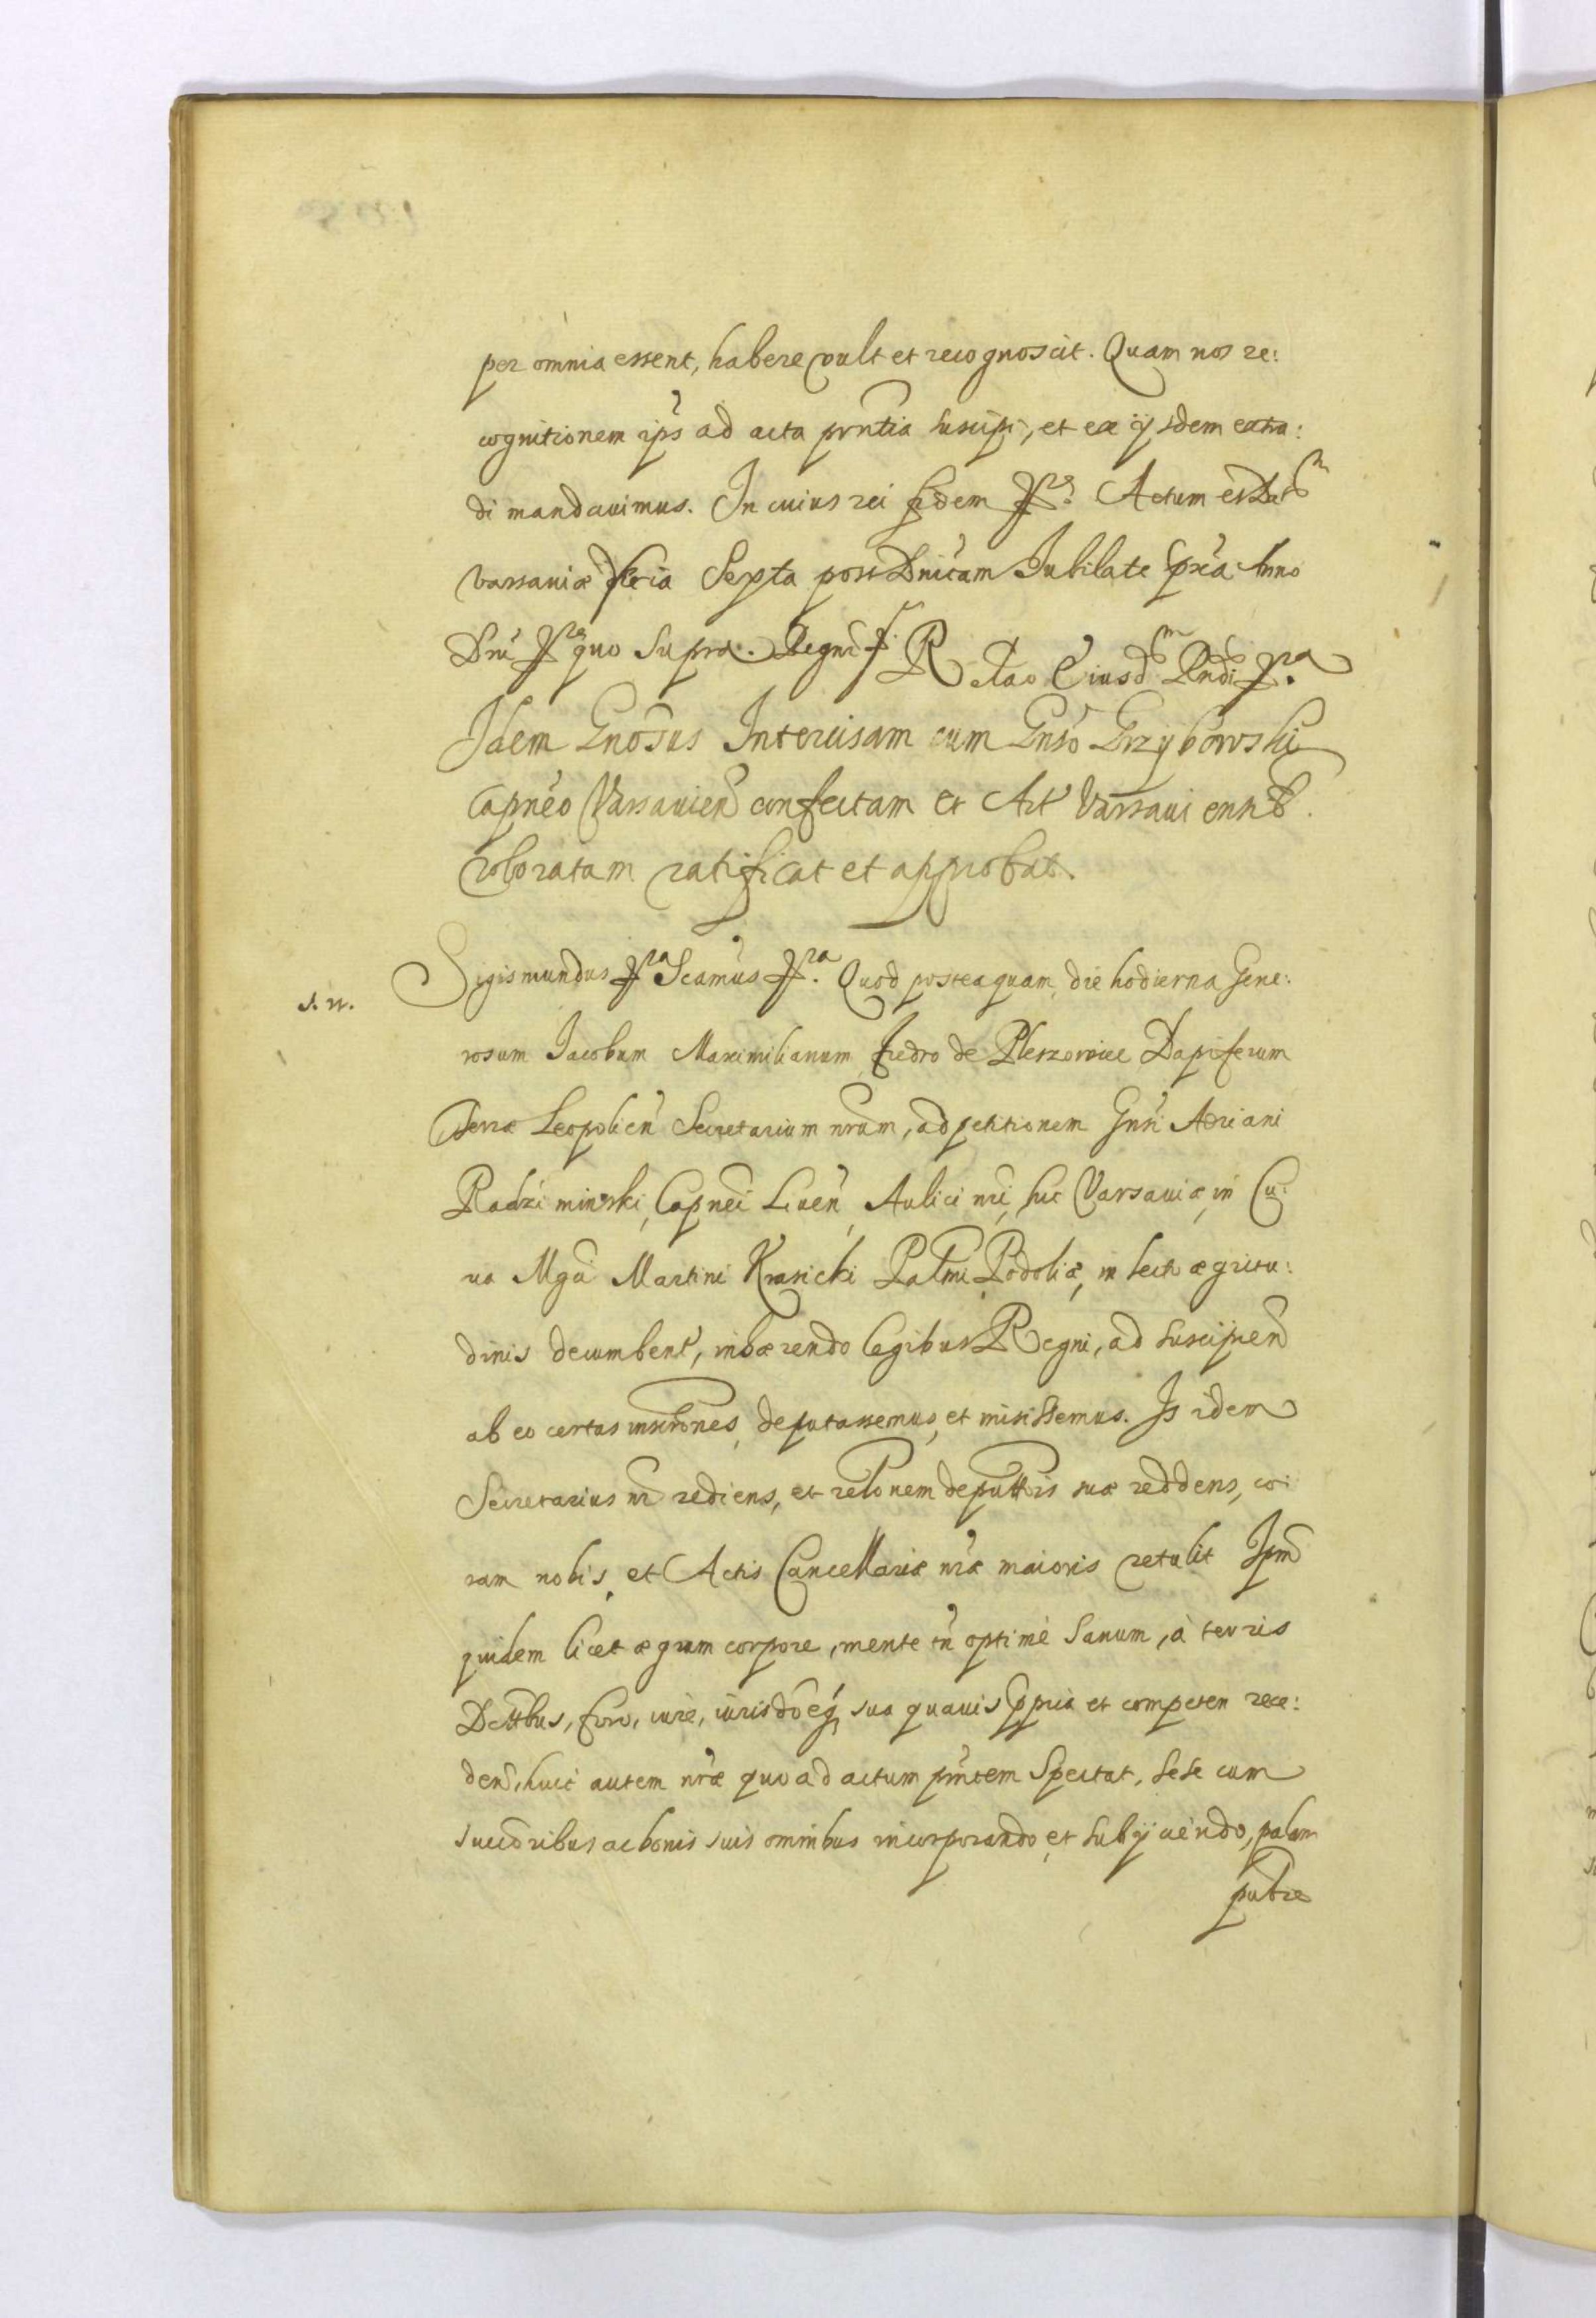 per omnia essent, habere vult et recognoscit. Quam nos re:
cognitionem ips ad acta prntia suscipi, et ex ijsdem extra:
di mandauimus. In cuius rei fidem Actum et Datu
Varsauiæ Feria Sexta post Dnicam Iubilate pxa Anno
Dni quo supra. Regni
R elao Eiusd
Idem Gnosus Intercisam cum Gnso Grzybowski
Capneo Varsauien confectam et Act Varsauienb.
roboratam ratificat et approbat.
s. n.
Sigismundus Scamus Quod posteaquam die hodierna Gene:
rosum Iacobum Maximilianum Fredro de Pleszowice Dapiferum
Terræ Leopolien Secretarium nrum, ad petitionem Gnsi Adriani
Radziminski, Capnei Liuen, Aulici nri, hic Varsauiæ, in Cu:
ria Mgci Martini Krasicki Palni Podoliæ, in lecto ægritu:
dinis decumbent, inhærendo legibus Regni, ad suscipien
ab eo certas inscrones, deputassemus, et misissemus. Is idem
Secretarius nr rediens, et relonem deputtois suæ reddens, co:
ram nobis, et Actis Cancellariæ nræ maioris retulit Ipm
quidem licet ægrum corpore, mente tn optimè sanum, à terris
Disttbus, foro, iure, iurisdoeq sua quauis ppria et competen rece:
den, huic autem nræ quo ad actum pntem spectat, sese cum
succoribus ac bonis suis omnibus incorporando, et subijciendo, palam
publre